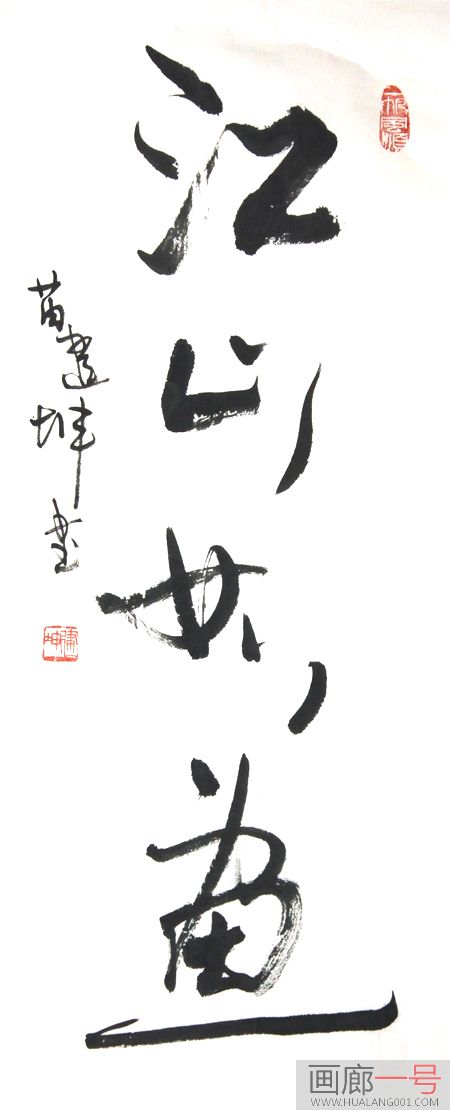 江山如画
苗建坤书
建坤
画廊一号
WWW.HUALANG001.COM